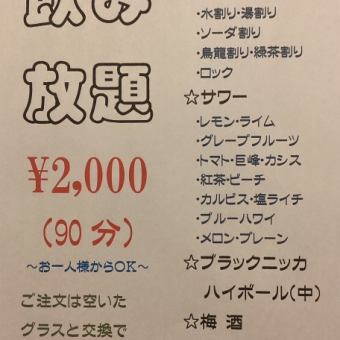 飲み
放題
¥2,000
(90 分)
～お一人様からOK～
ご注文は空いた
グラスと交換で
・水割り・湯割り
・ソーダ割り
・烏龍割り・緑茶割り
・ロック
☆サワー
・レモン・ライム
・グレープフルーツ
・トマト・巨峰・カシス
・紅茶・ピーチ
・カルピス・塩ライチ
・ブルーハワイ
・メロン・プレーン
☆ブラックニッカ
ハイボール(中)
☆梅 酒